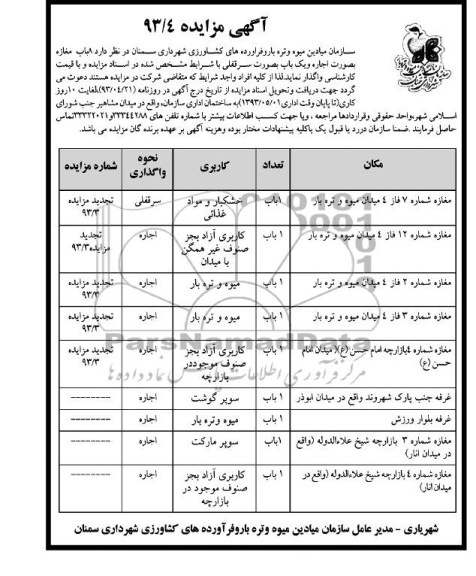 آگهی مزایده ۹۳/۴
سازمان میادین میوه وتره باروفرآورده های کشاورزی شهرداری سمنان در نظر دارد ۸باب مغازه
بصورت اجاره ویک باب بصورت سرقفلی با شرایط مشخص شده در اسناد مزایده و با قیمت
کارشناسی واگذار نماید.لذا از کلیه افراد واجد شرایط که متقاضی شرکت در مزایده هستند دعوت می
گردد جهت دریافت وتحویل اسناد مزایده از تاریخ درج آگهی در روزنامه (۹۳/۰۴/۲۱)،لغایت ۱۰روز
کاری(تا پایان وقت اداری۱۳۹۳/۰۵/۰۱)به ساختمان اداری سازمان، واقع در میدان مشاهیر جنب شورای
اسلامی شهرواحد حقوقی وقراردادها مراجعه ، ویا جهت کسب اطلاعات بیشتر با شماره تلفن های ۳۳۳۴۴۲۸۸و۳۳۳۲۲۰۲۱تماس
حاصل فرمایند .ضمنا سازمان دررد یا قبول یک یاکلیه پیشنهادات مختار بوده وهزینه آگهی بر عهده برنده گان مزایده می باشد.
مکان تعداد کاربری نحوه واگذاری شماره مزایده
مغازه شماره ۷ فاز ۴ میدان میوه و تره بار ۱باب خشکبار و مواد غذائی سرقفلی تجدید مزایده ۹۳/۳
مغازه شماره ۱۲ فاز ۴ میدان میوه و تره بار ۱ باب کاربری آزاد بجز صنوف غیر همگن با میدان اجاره تجدید مزایده۹۳/۳
مغازه شماره ۲ فاز ۴ میدان میوه و تره بار ۱ باب میوه و تره بار اجاره تجدید مزایده ۹۳/۳
مغازه شماره ۳ فاز ۴ میدان میوه و تره بار ۱ باب میوه و تره بار اجاره تجدید مزایده ۹۳/۳
مغازه شماره ۴بازارچه امام حسن (ع)( میدان امام حسن (ع) ۱ باب کاربری آزاد بجز صنوف موجوددر بازارچه اجاره تجدید مزایده ۹۳/۳
غرفه جنب پارک شهروند واقع در میدان ابوذر ۱ باب سوپر گوشت اجاره --------
غرفه بلوار ورزش ۱ باب میوه وتره بار اجاره --------
مغازه شماره ۳ بازارچه شیخ علاءالدوله (واقع در میدان انار) ۱باب سوپر مارکت اجاره --------
مغازه شماره ۴ بازارچه شیخ علاءالدوله (واقع در میدان انار) ۱ باب کاربری آزاد بجز صنوف موجود در بازارچه اجاره --------
ParsNamadData
مرکز فرآوری اطلاعات پارس نماد داده ها
شهریاری - مدیر عامل سازمان میادین میوه وتره باروفرآورده های کشاورزی شهرداری سمنان